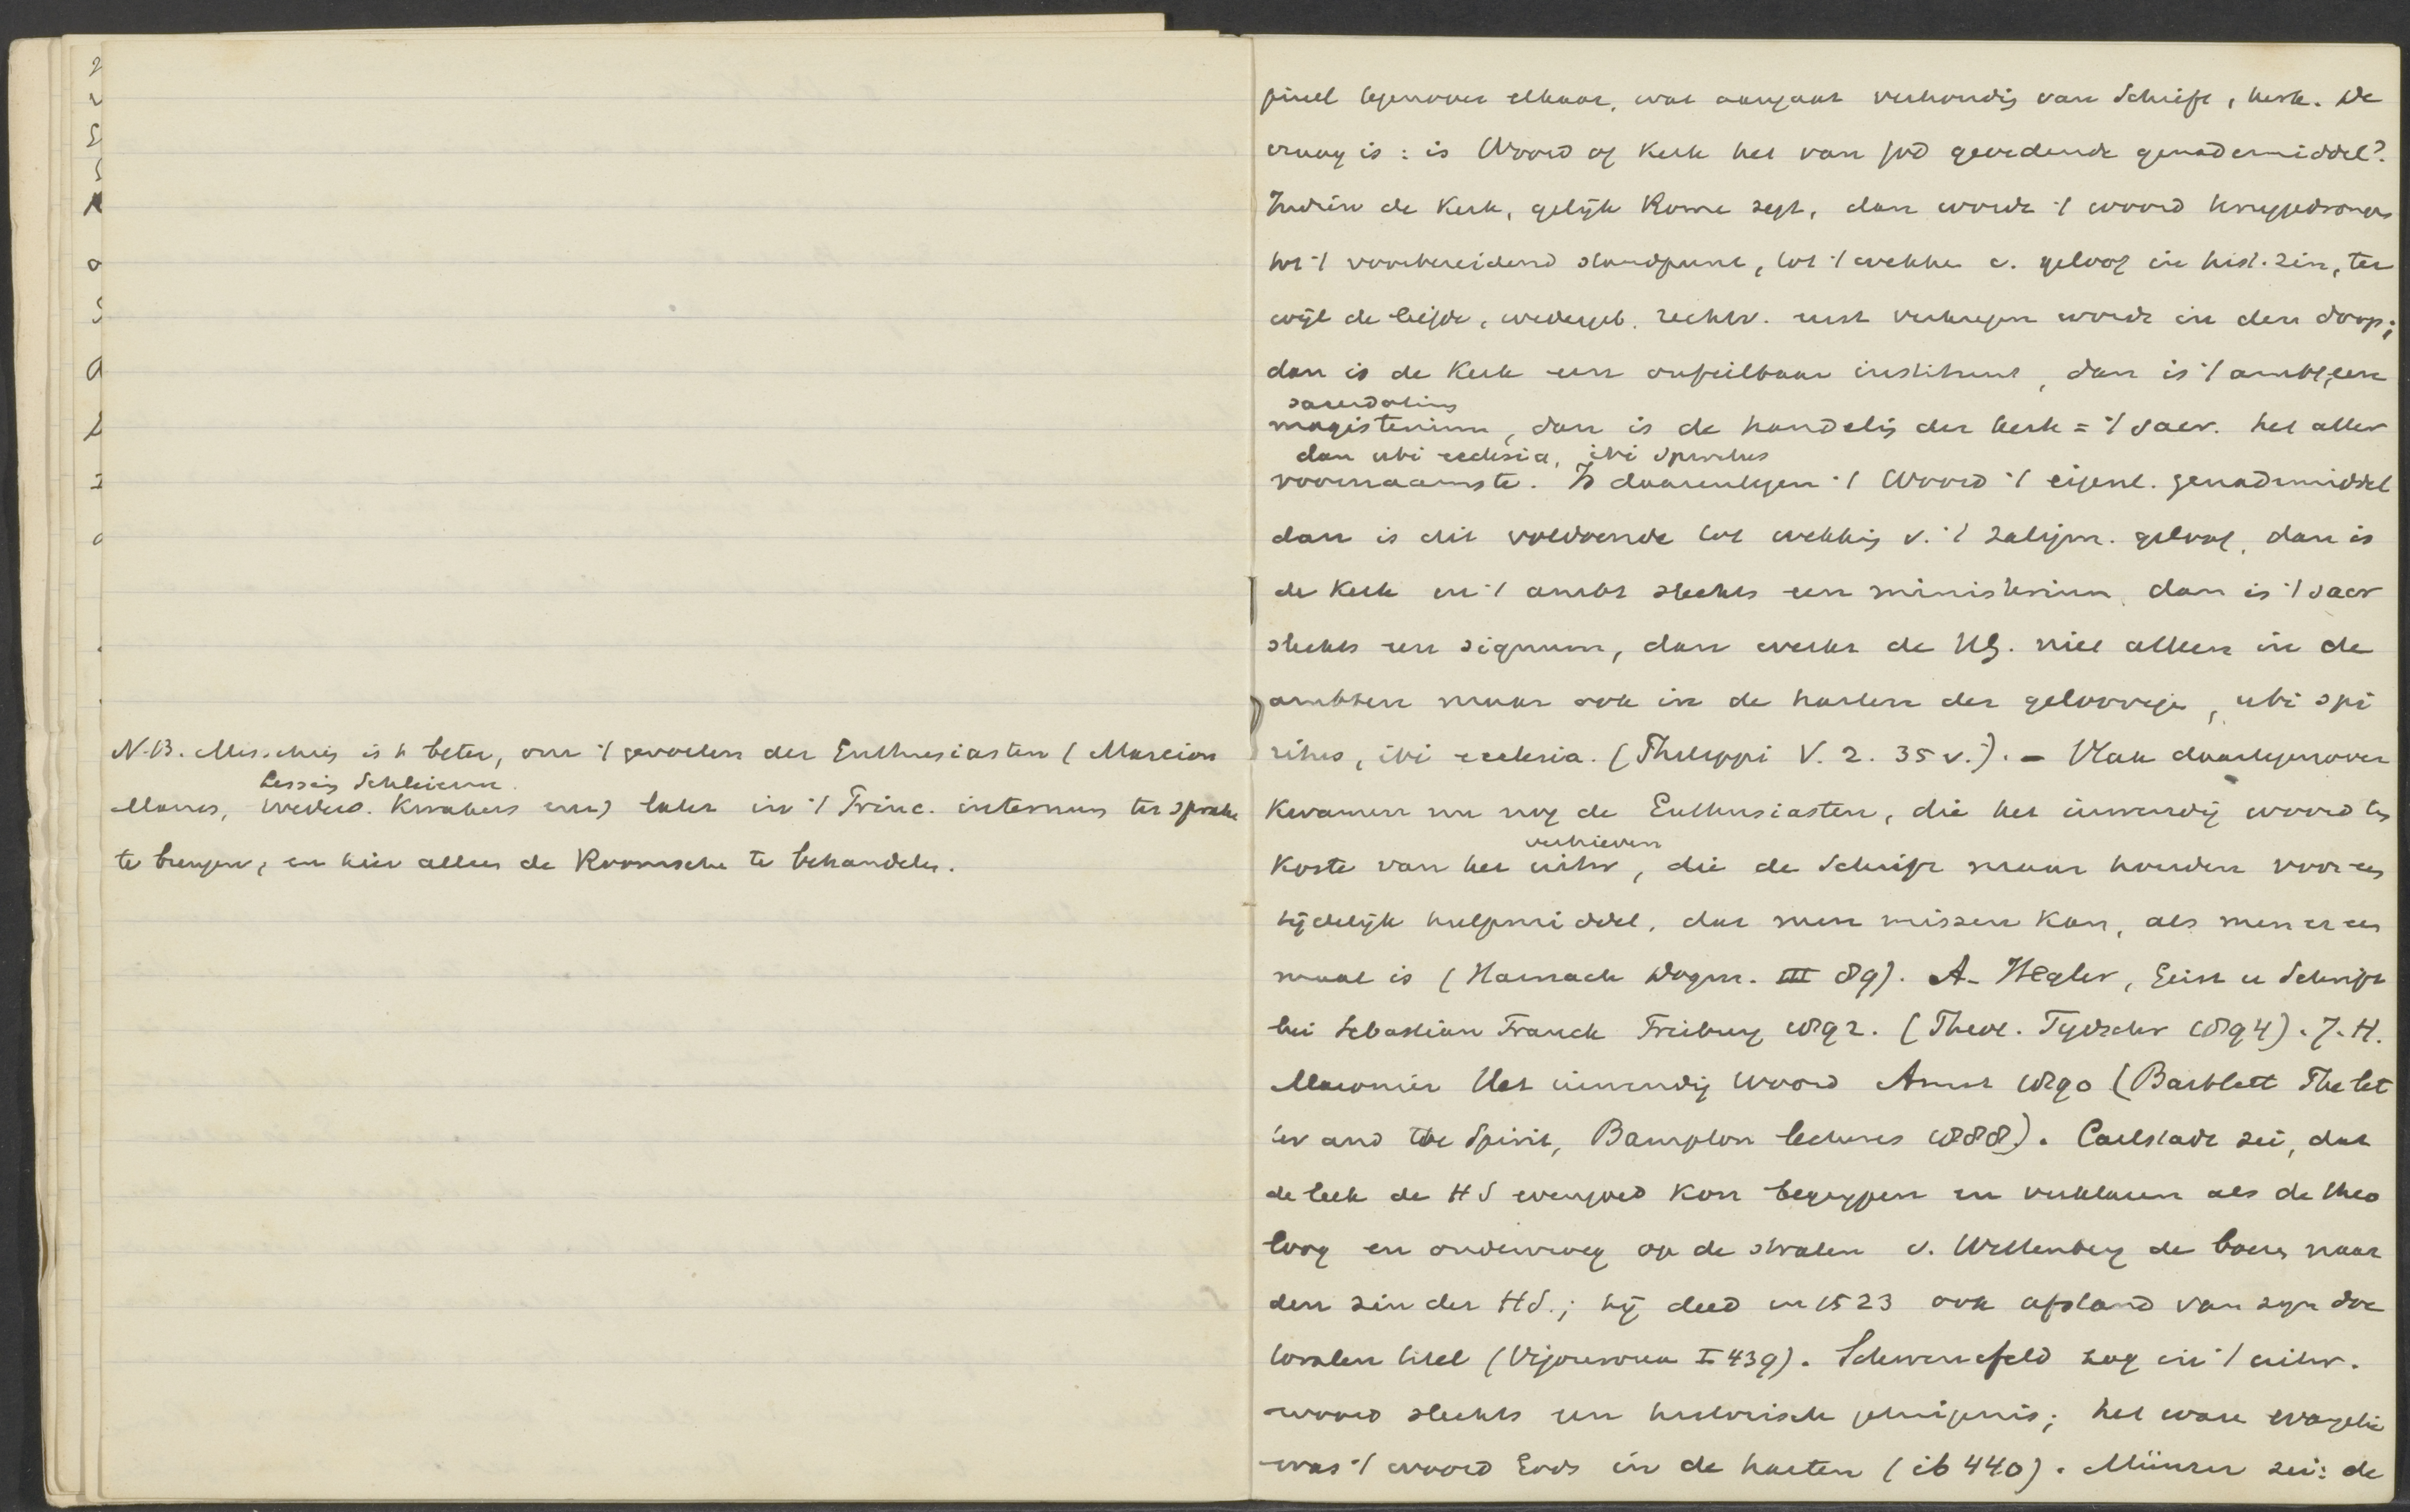 N.B. Misschien is 't beter, om 't gevoelen der Enthusiasten (Marcion
Lessing Schleierm.
Manes, wederd. Kwakers enz) later in 't Princ. internum ter sprake
te brengen, en hier alleen de Roomsche te behandelen.
pieel tegenover elkaar, wat aangaat verhoudg van Schrift, kerk. De
vraag is: is Woord of Kerk het van God gev genademiddel?
Indien de Kerk, gelijk Rome zegt, dan wordt 't woord teruggedrongen
tot 't voorbereidend standpunt, tot 't wekken v. geloof in hist. zin, ter
wijl de liefde, wedergeb. rechtv. eerst verkregen wordt in den doop;
dan is de Kerk een onfeilbaar instituut, dan is 't ambt een
sacerdotium
magisterium, dan is de handelg der kerk = 't sacr. het aller
dan ubi ecclesia, ibi spiritus
voornaamste. Is daarentegen 't Woord 't eigenl. genademiddel
dan is dit voldoende tot wekkig v. 't zaligm. geloof, dan is
de Kerk en 't ambt slechts een ministerium, dan is 't sacr
slechts een signum, dan werkt de HG. niet alleen in de
ambten maar ook in de harten der geloovige, ubi spi
ritus, ibi ecclesia. (Philippi V. 2. 35 v.). - Vlak daartegenover
kwamen nu nog de Enthusiasten, die het inwendig woord ten
verhieven
koste van het uitw, die de Schrift maar houden voor een
tijdelijk hulpmiddel, dat men missen kan, als men er een
maal is (Harnack Dogm. III 89). A. Hegler, Geist u Schrift
bei Sebastian Franck Freiburg 1892. (Theol. Tydschr 1894). J. H.
Maronier Het inwendig woord Amst 1890 (Bartlett The let
ter and the Spirit, Bampton lectures 1888). Carlstadt zei, dat
de leek de HS evengoed kon begrypen en verklaren als de theo
loog en ondervroeg op de straten v. Wittenberg de boeren naar
den zin der HS.; hij deed in 1523 ook afstand van zyn doc
toralen titel (Vigouroux I 439). Schwenckfeld zag in 't uitw.
woord slechts een historisch getuigenis; het ware evangelie
was 't woord Gods in de harten (ib 440). Münzer zei: de